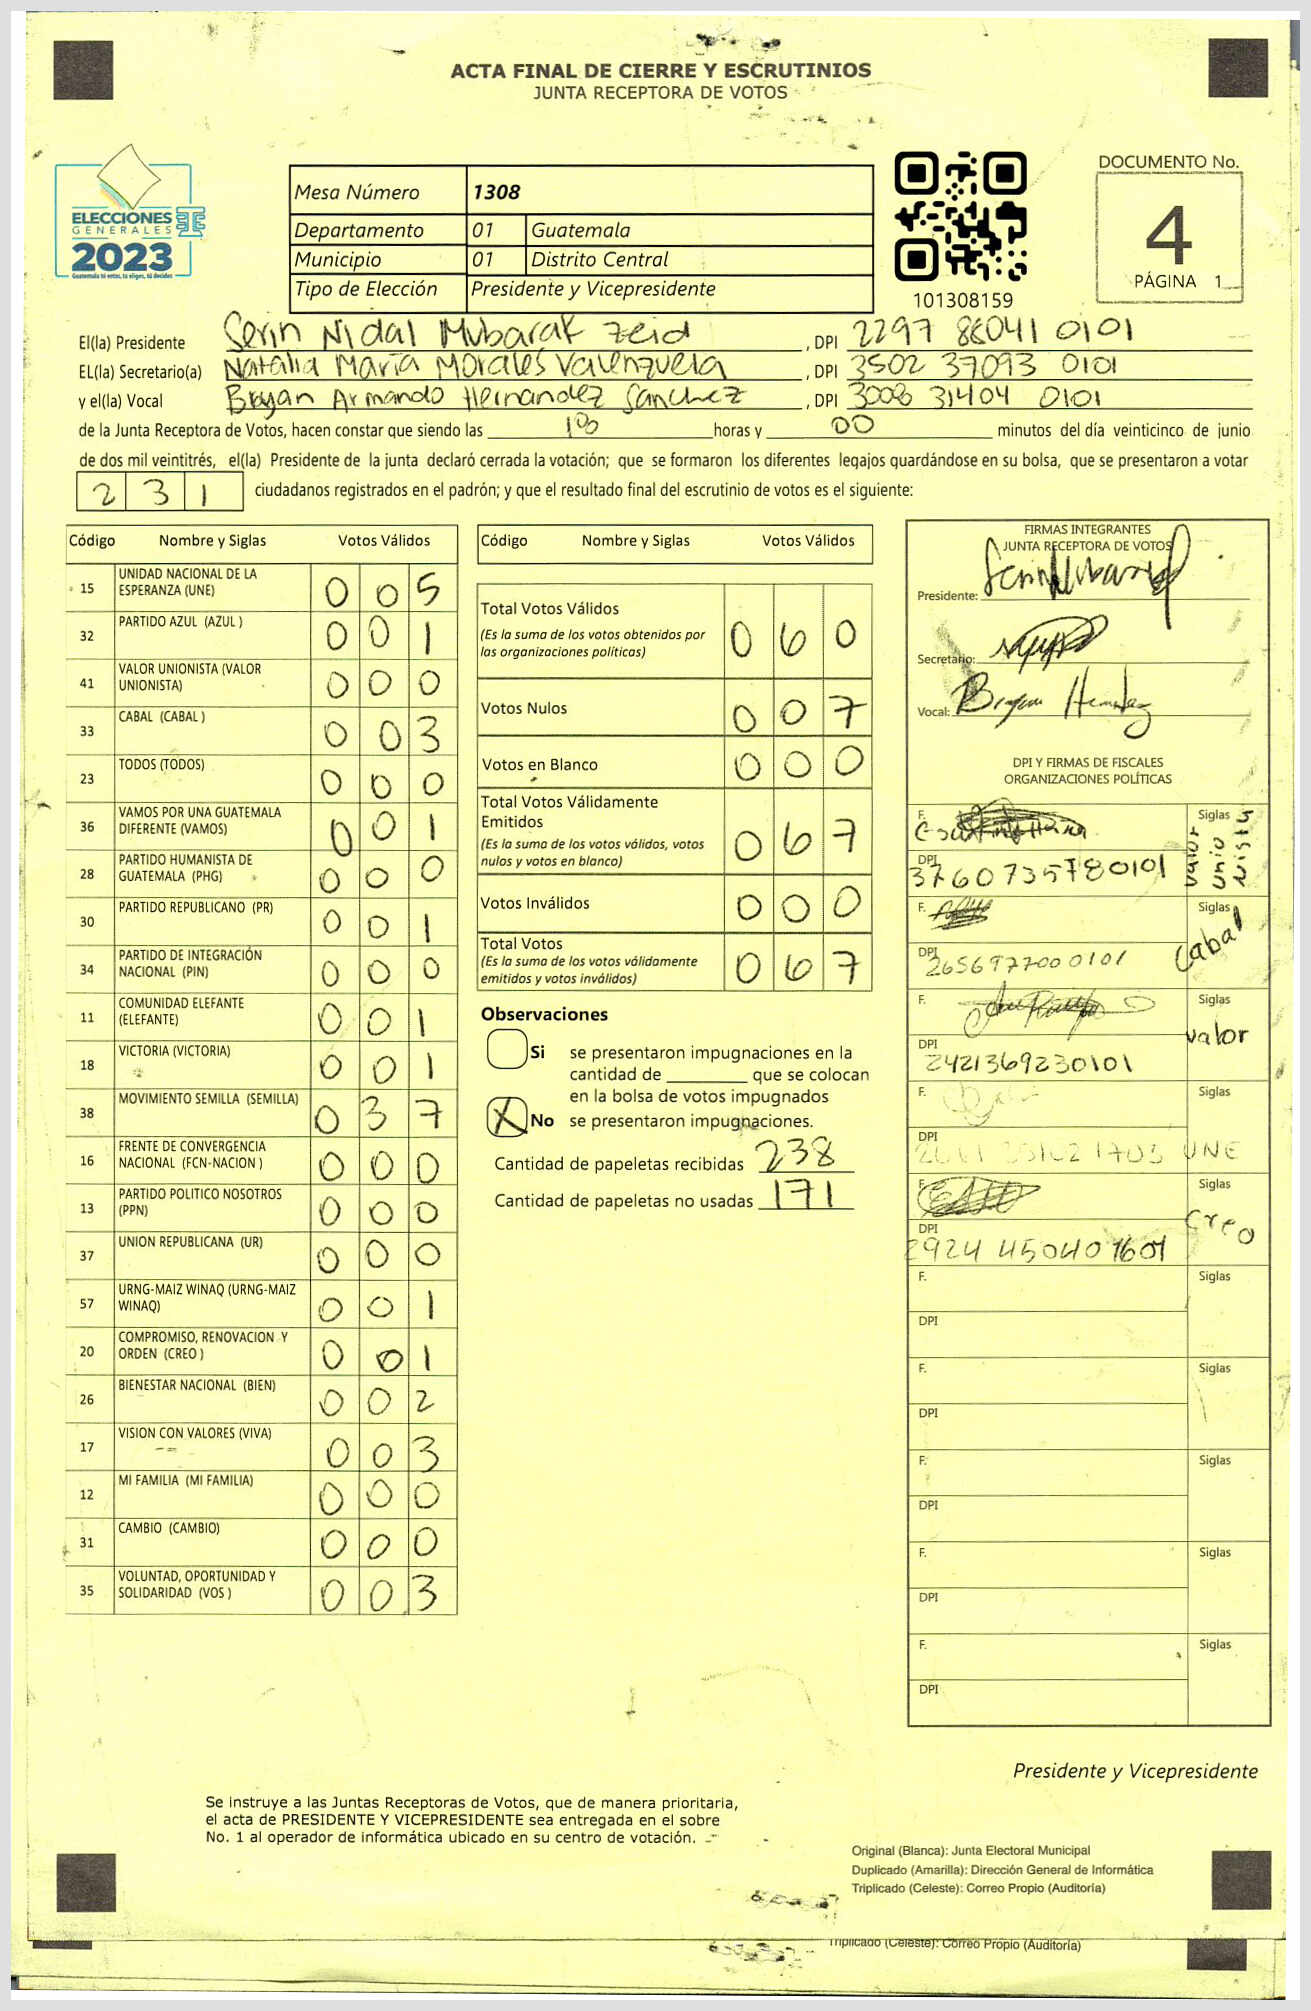 ACTA FINAL DE CIERRE Y ESCRUTINIOS
JUNTA RECEPTORA DE VOTOS
ELECCIONES
GENERALES
2023
Guatemala tú eres, tú eliges, tú decides
Mesa Número 1308
Departamento 01 Guatemala
Municipio 01 Distrito Central
Tipo de Elección Presidente y Vicepresidente
101308159
DOCUMENTO No.
4
PÁGINA 1
El(la) Presidente Serin Nidal Mubarak Zeid , DPI 2297 86041 0101
EL(la) Secretario(a) Natalia María Morales Valenzuela , DPI 3502 37093 0101
y el(la) Vocal Bryan Armando Hernandez Sanchez , DPI 3008 31404 0101
de la Junta Receptora de Votos, hacen constar que siendo las horas y 00 minutos del día veinticinco de junio
de dos mil veintitrés, el(la) Presidente de la junta declaró cerrada la votación; que se formaron los diferentes legajos guardándose en su bolsa, que se presentaron a votar
231 ciudadanos registrados en el padrón; y que el resultado final del escrutinio de votos es el siguiente:
Código Nombre y Siglas Votos Válidos
15 UNIDAD NACIONAL DE LA ESPERANZA (UNE) 0 0 5
32 PARTIDO AZUL (AZUL ) 0 0 1
41 VALOR UNIONISTA (VALOR UNIONISTA) 0 0 0
33 CABAL (CABAL ) 0 0 3
23 TODOS (TODOS) 0 0 0
36 VAMOS POR UNA GUATEMALA DIFERENTE (VAMOS) 0 0 1
28 PARTIDO HUMANISTA DE GUATEMALA (PHG) 0 0 0
30 PARTIDO REPUBLICANO (PR) 0 0 1
34 PARTIDO DE INTEGRACIÓN NACIONAL (PIN) 0 0 0
11 COMUNIDAD ELEFANTE (ELEFANTE) 0 0 1
18 VICTORIA (VICTORIA) 0 0 1
38 MOVIMIENTO SEMILLA (SEMILLA) 0 3 7
16 FRENTE DE CONVERGENCIA NACIONAL (FCN-NACION ) 0 0 0
13 PARTIDO POLITICO NOSOTROS (PPN) 0 0 0
37 UNION REPUBLICANA (UR) 0 0 0
57 URNG-MAIZ WINAQ (URNG-MAIZ WINAQ) 0 0 1
20 COMPROMISO, RENOVACION Y ORDEN (CREO ) 0 0 1
26 BIENESTAR NACIONAL (BIEN) 0 0 2
17 VISION CON VALORES (VIVA) 0 0 3
12 MI FAMILIA (MI FAMILIA) 0 0 0
31 CAMBIO (CAMBIO) 0 0 0
35 VOLUNTAD, OPORTUNIDAD Y SOLIDARIDAD (VOS ) 0 0 3
Código Nombre y Siglas Votos Válidos
Total Votos Válidos 0 6 0
(Es la suma de los votos obtenidos por
las organizaciones políticas)
Votos Nulos 0 0 7
Votos en Blanco 0 0 0
Total Votos Válidamente
Emitidos 0 6 7
(Es la suma de los votos válidos, votos
nulos y votos en blanco)
Votos Inválidos 0 0 0
Total Votos 0 6 7
(Es la suma de los votos válidamente
emitidos y votos inválidos)
Observaciones
Si se presentaron impugnaciones en la
cantidad de ________ que se colocan
en la bolsa de votos impugnados
X No se presentaron impugnaciones.
Cantidad de papeletas recibidas 238
Cantidad de papeletas no usadas 171
FIRMAS INTEGRANTES
JUNTA RECEPTORA DE VOTOS
Presidente:
Secretario:
Vocal: Bryan Hernandez
DPI Y FIRMAS DE FISCALES
ORGANIZACIONES POLÍTICAS
F. Siglas valor unionista
DPI 3760735780101
F. Siglas Cabal
DPI 2656977000101
F. Siglas valor
DPI 2421369230101
F. Siglas UNE
DPI
F. Siglas Creo
DPI 2924 45040 1601
F. Siglas
DPI
F. Siglas
DPI
F. Siglas
DPI
F. Siglas
DPI
F. Siglas
DPI
Presidente y Vicepresidente
Se instruye a las Juntas Receptoras de Votos, que de manera prioritaria,
el acta de PRESIDENTE Y VICEPRESIDENTE sea entregada en el sobre
No. 1 al operador de informática ubicado en su centro de votación.
Original (Blanca): Junta Electoral Municipal
Duplicado (Amarilla): Dirección General de Informática
Triplicado (Celeste): Correo Propio (Auditoría)
Triplicado (Celeste): Correo Propio (Auditoría)